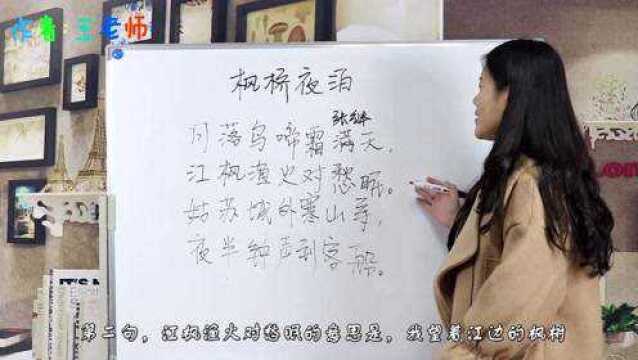 作者 王老师
枫桥夜泊
张继
月落乌啼霜满天,
江枫渔火对愁眠。
姑苏城外寒山寺,
夜半钟声到客船。
第二句，江枫渔火对愁眠的意思是，我望着江边的枫树